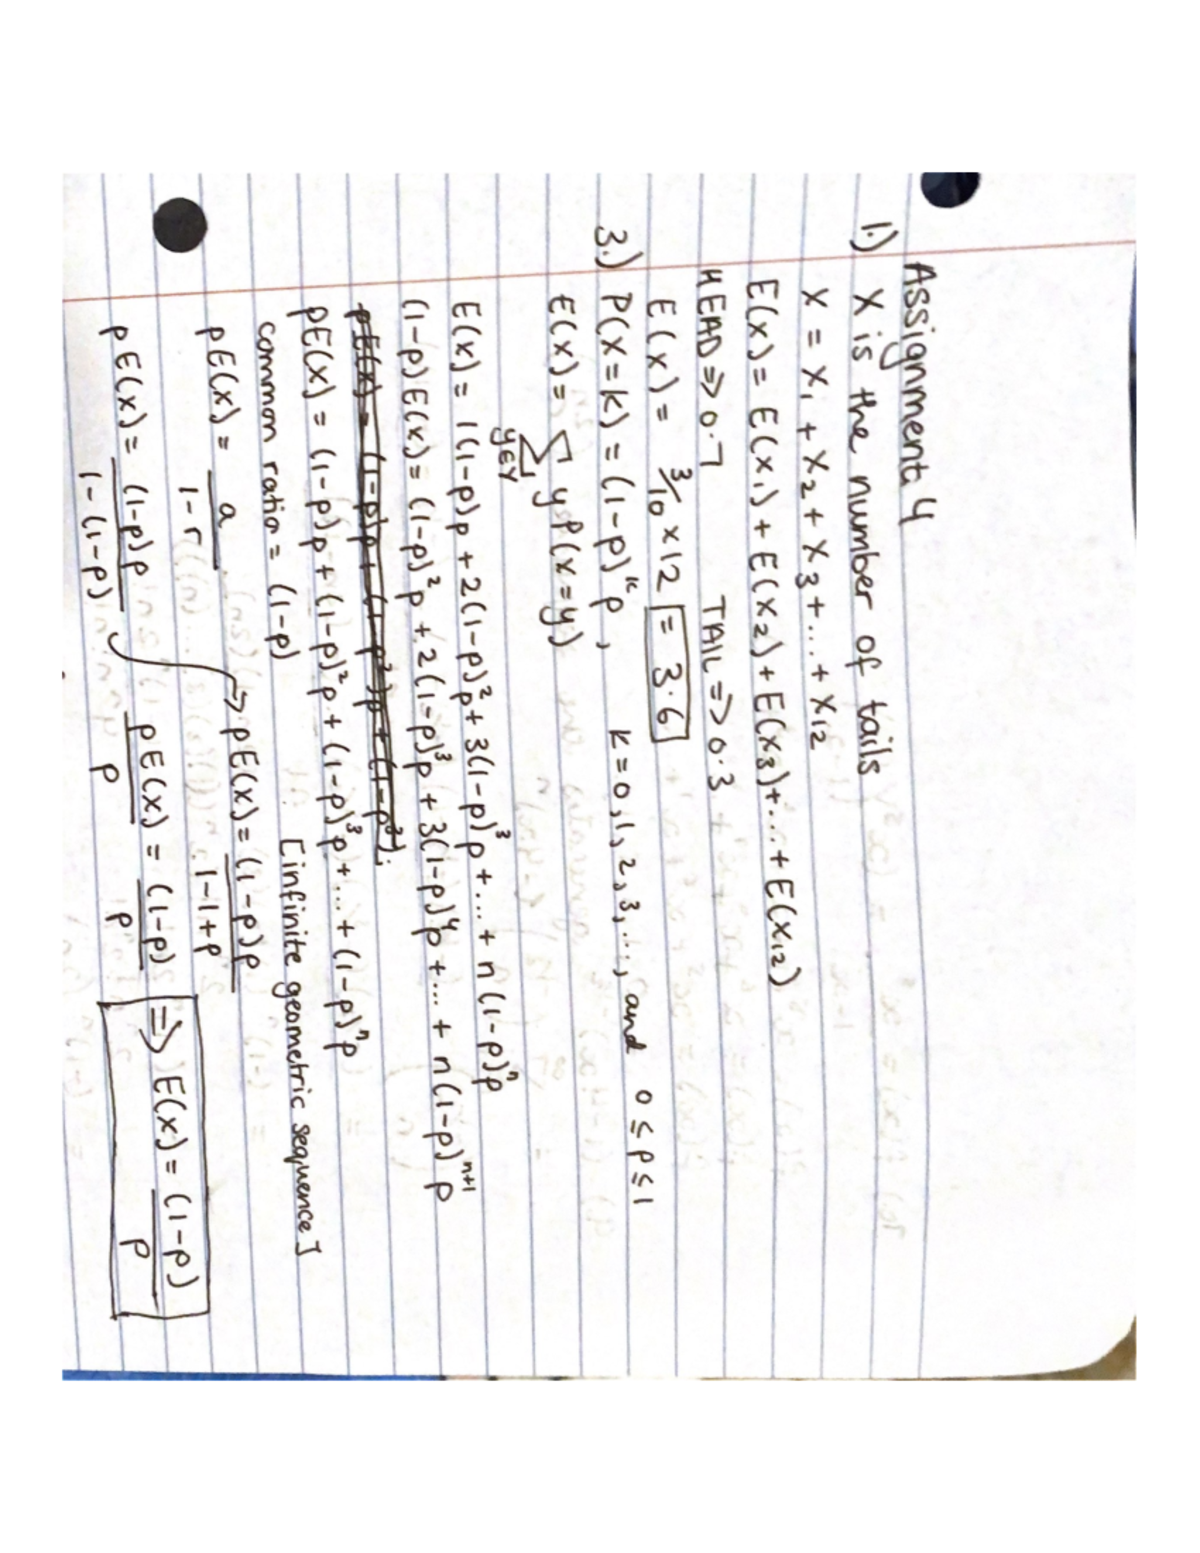 Assignment 4
1.) X is the number of tails
X = X₁ + X₂ + X₃ + ... + X₁₂
E(x) = E(x₁) + E(x₂) + E(x₃) + ... + E(x₁₂)
HEAD => 0.7 TAIL => 0.3
E(x) = 3/10 x 12 = 3.6
3.) P(x=k) = (1-p)ᵏp, k = 0,1,2,3,..., and 0 ≤ p ≤ 1
E(x) = Σ y P(x=y)
y∈Y
E(x) = 1(1-p)p + 2(1-p)²p + 3(1-p)³p + ... + n(1-p)ⁿp
(1-p)E(x) = (1-p)²p + 2(1-p)³p + 3(1-p)⁴p + ... + n(1-p)ⁿ⁺¹p
pE(x) = (1-p)p + (1-p)²p + (1-p)³p + ... + (1-p)ⁿp
common ratio = (1-p) [infinite geometric sequence]
pE(x) = a/1-r → pE(x) = (1-p)p/1-1+p
pE(x) = (1-p)p/1-(1-p) pE(x)/p = (1-p)/p => E(x) = (1-p)/p